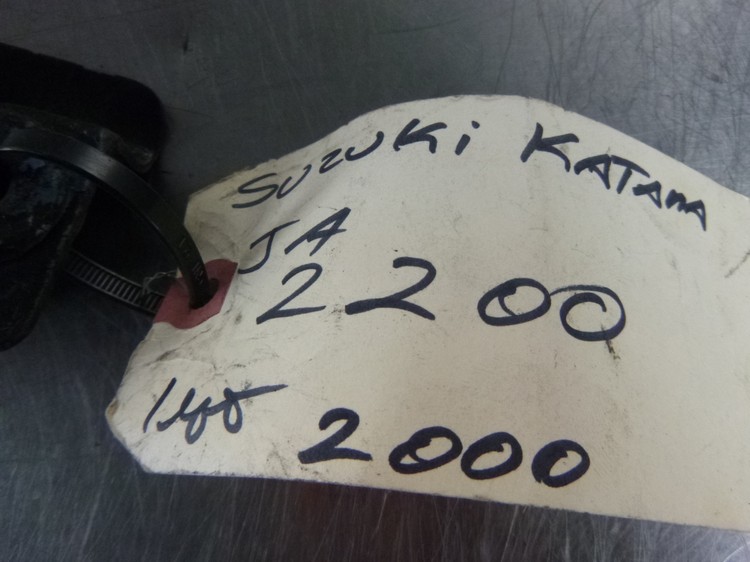 SUZUKi KATANA
JA
2200
2000